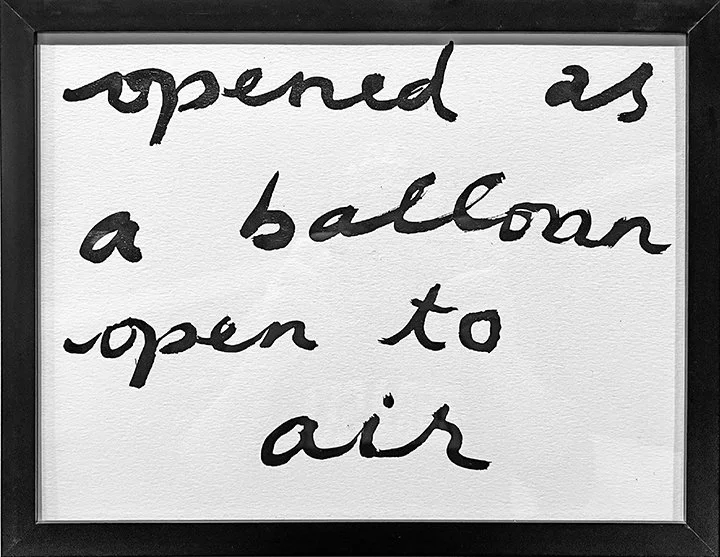 opened as
a balloon
open to
air